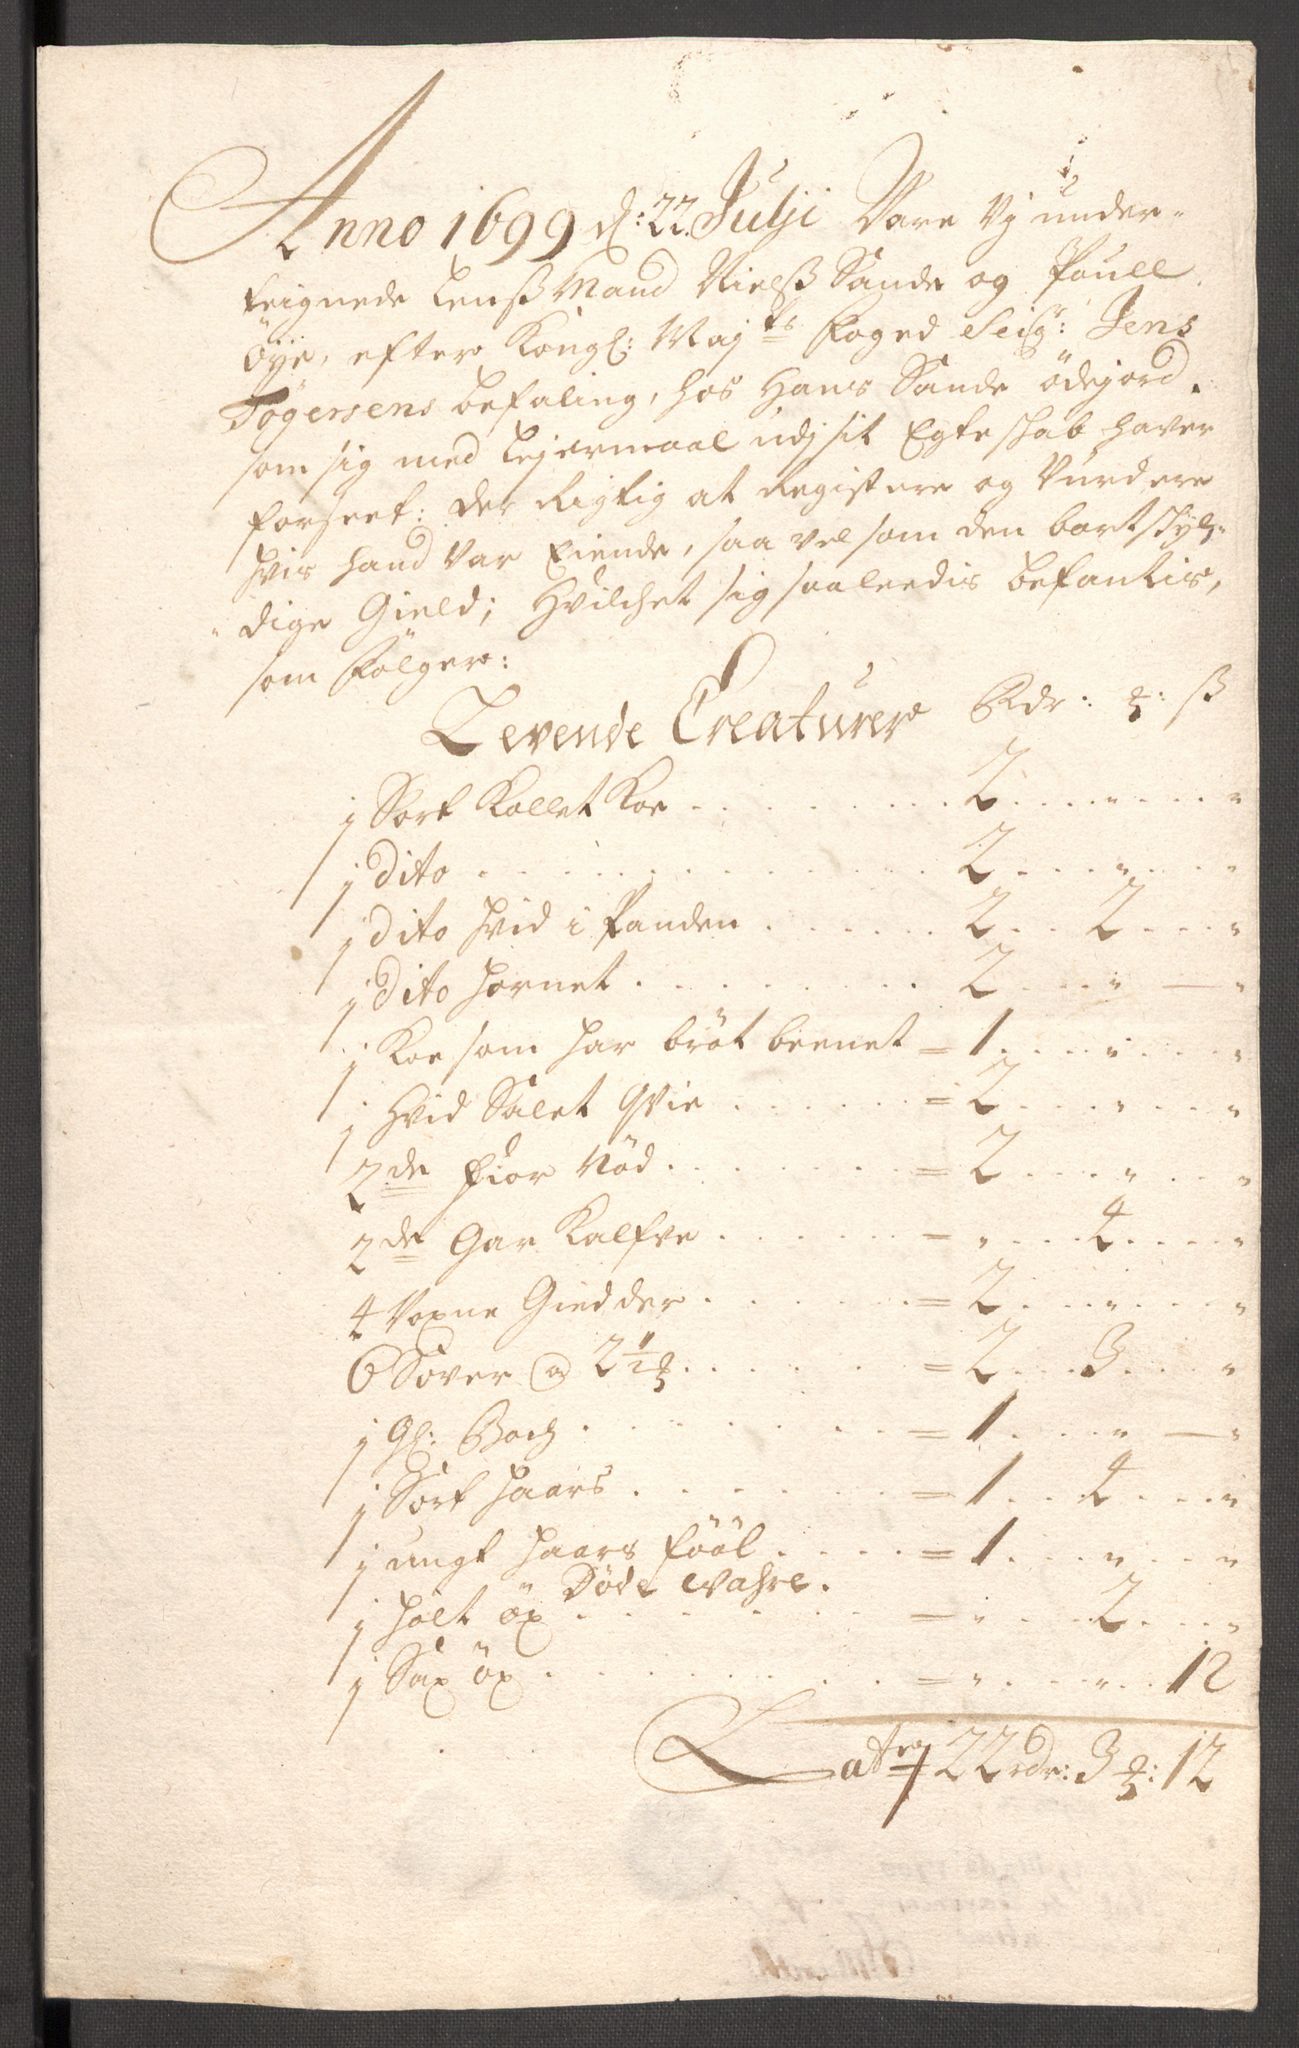 Anno 1699 d: 22. Julji Vare Vj under-
teignede Lenß Mand Nielß Sande og Poull
Öÿe, efter Kongl: Maj.ts Foged Seigr: Jens
Tögersens befaling, hos Hans Sande ödejord.
som sig med Lejermaal udj sit Egteskab haver
forseet: der Rigtig at Registere og Vurdere
hvis hand var Eiende, saa vel som den bortskyl-
dige Gield; Hvilchet sig saaleedis befantis,
som fölger:
Levende Creaturer Rdr: ß
1 Sort Kollet Koe 2 " "
1 dito 2 " "
1 dito hvid i Panden 2 2 "
1 dito hornet 2 " "
1 Koe som har bröt beenet = 1 " "
1 Hvid Salet Qvie = 2 " "
2de fior Nöd = 2 " "
2de Gar Kalfve = " 4 "
4 Voxne Giedder = 2 " "
6 Sover a 2½ = 2 3 "
1 Gl: Boch = 1 " "
1 Sort haars = 1 4 "
1 ungt haars fööl = 1 " "
Döde wahre.
1 holt öx = " 2 "
1 Sax öx = " " 12
Laterj 22 rdr: 3 : 12